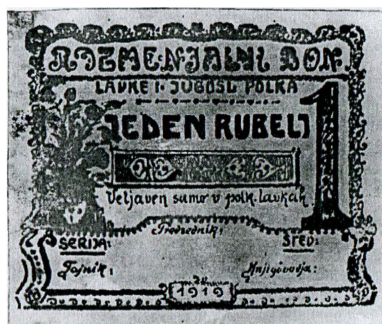 RAZMENJALNI BON
LAVKE I. JUGOSL. POLKA
JEDEN RUBELJ
1
Veljaven samo v polk. lavkah
Predsednik:
SERIJA: ŠTEV:
Tajnik: Knjigovodja:
1919